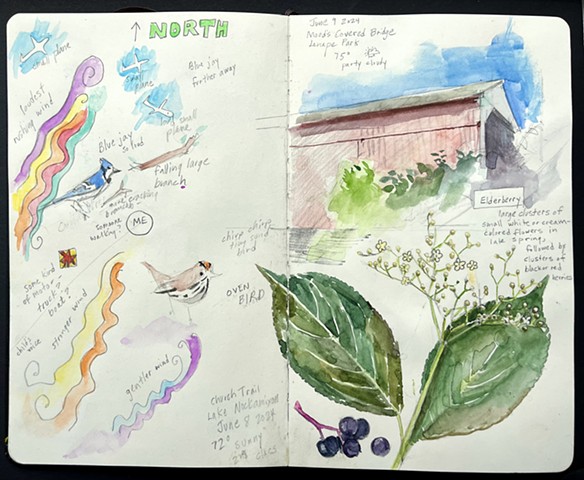 ↑ NORTH
small plane
small
plane
Blue jay
further away
loudest
nothing wind
small
plane
Blue jay
so loud
falling large
branch
more cracking
branches
someone
walking?
ME
chirp chirp
tiny
bird
some kind
of motor
truck?
boat?
stronger wind
OVEN
BIRD
gentler wind
Church Trail
Lake Nockamixon
June 8 2024
72° sunny
June 9 2024
Mood's Covered Bridge
Lenape Park
75°
party cloudy
Elderberry
large clusters of
small white or cream-
colored flowers in
late spring,
followed by
clusters of
black or red
berries